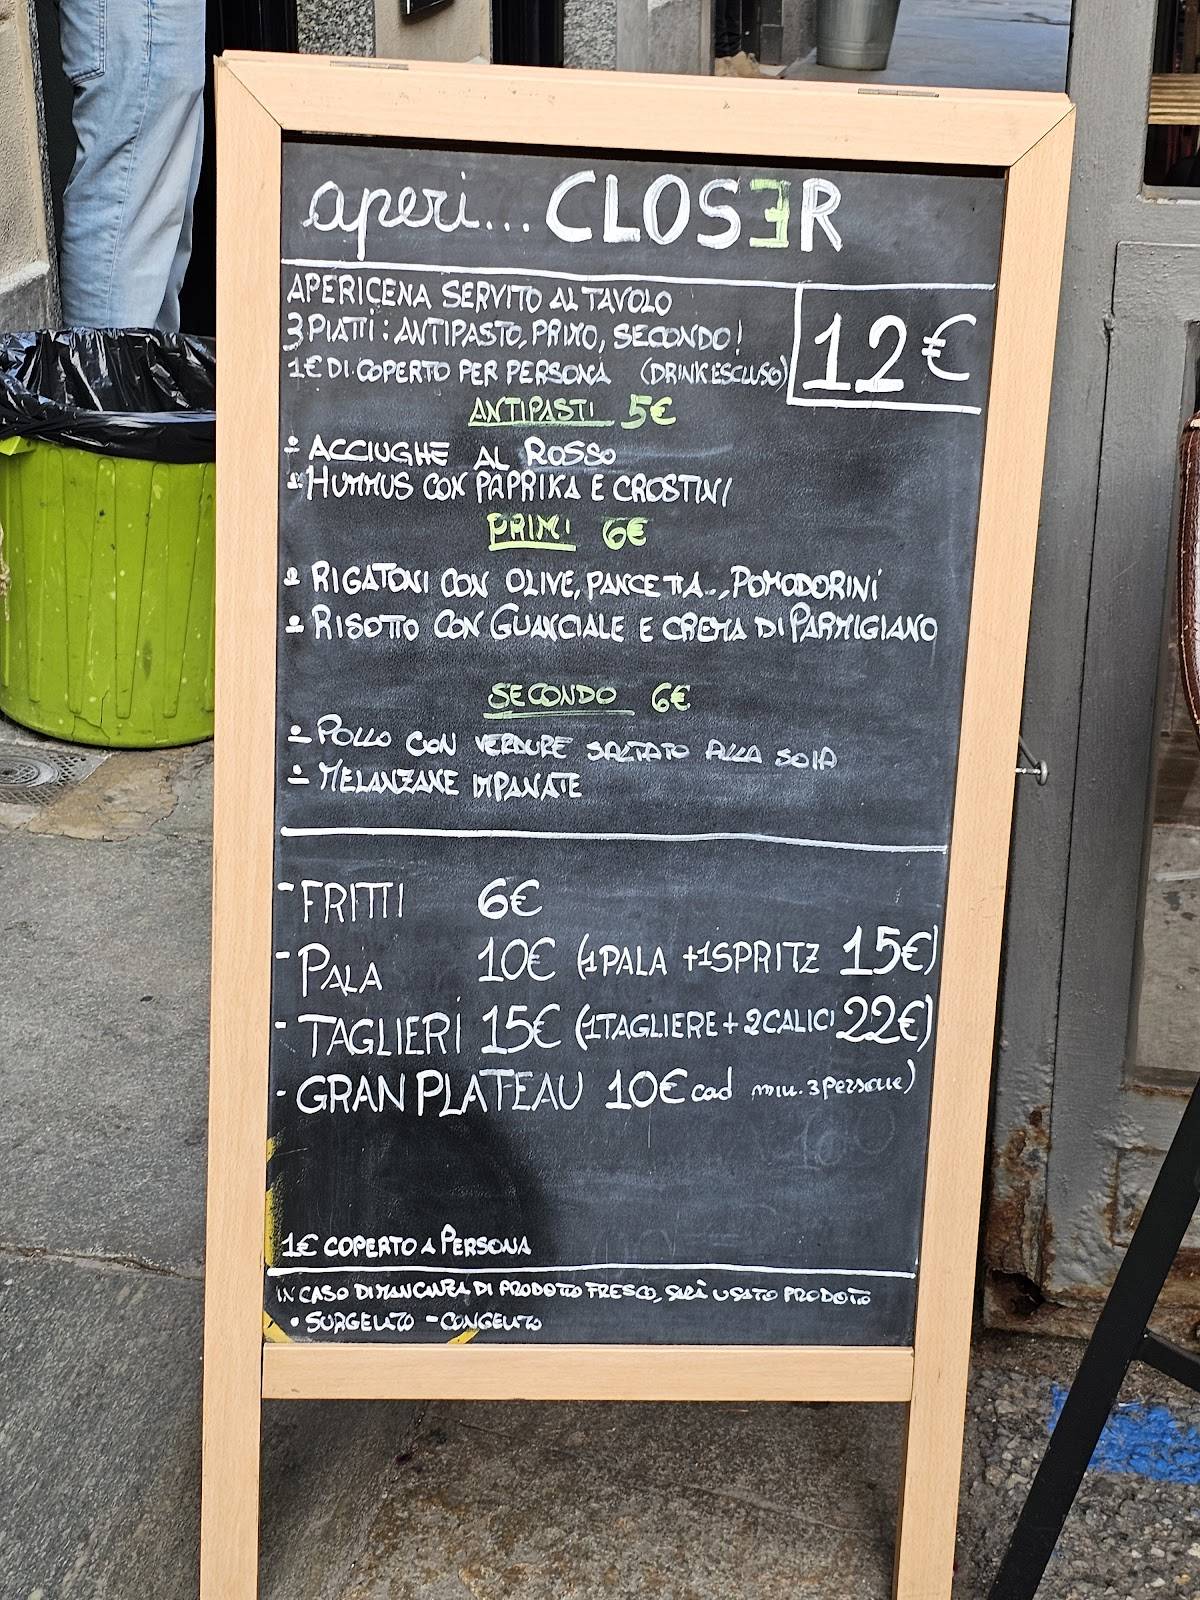 aperi... CLOSER
APERICENA SERVITO AL TAVOLO
3 PIATTI: ANTIPASTO, PRIMO, SECONDO!
12€
1€ DI COPERTO PER PERSONA (DRINK ESCLUSO)
ANTIPASTI 5€
- ACCIUGHE AL ROSSO
- HUMMUS CON PAPRIKA E CROSTINI
PRIMI 6€
- RIGATONI CON OLIVE, PANCETTA... POMODORINI
- RISOTTO CON GUANCIALE E CREMA DI PARMIGIANO
SECONDO 6€
- POLLO CON VERDURE SALTATO ALLA SOIA
- MELANZANE IMPANATE
- FRITTI 6€
- PALA 10€ (1 PALA + 1 SPRITZ 15€)
- TAGLIERI 15€ (1 TAGLIERE + 2 CALICI 22€)
- GRAN PLATEAU 10€ cad min. 3 persone)
1€ COPERTO A PERSONA
IN CASO DI MANCANZA DI PRODOTTO FRESCO, SARÀ USATO PRODOTTO
• SURGELATO - CONGELATO